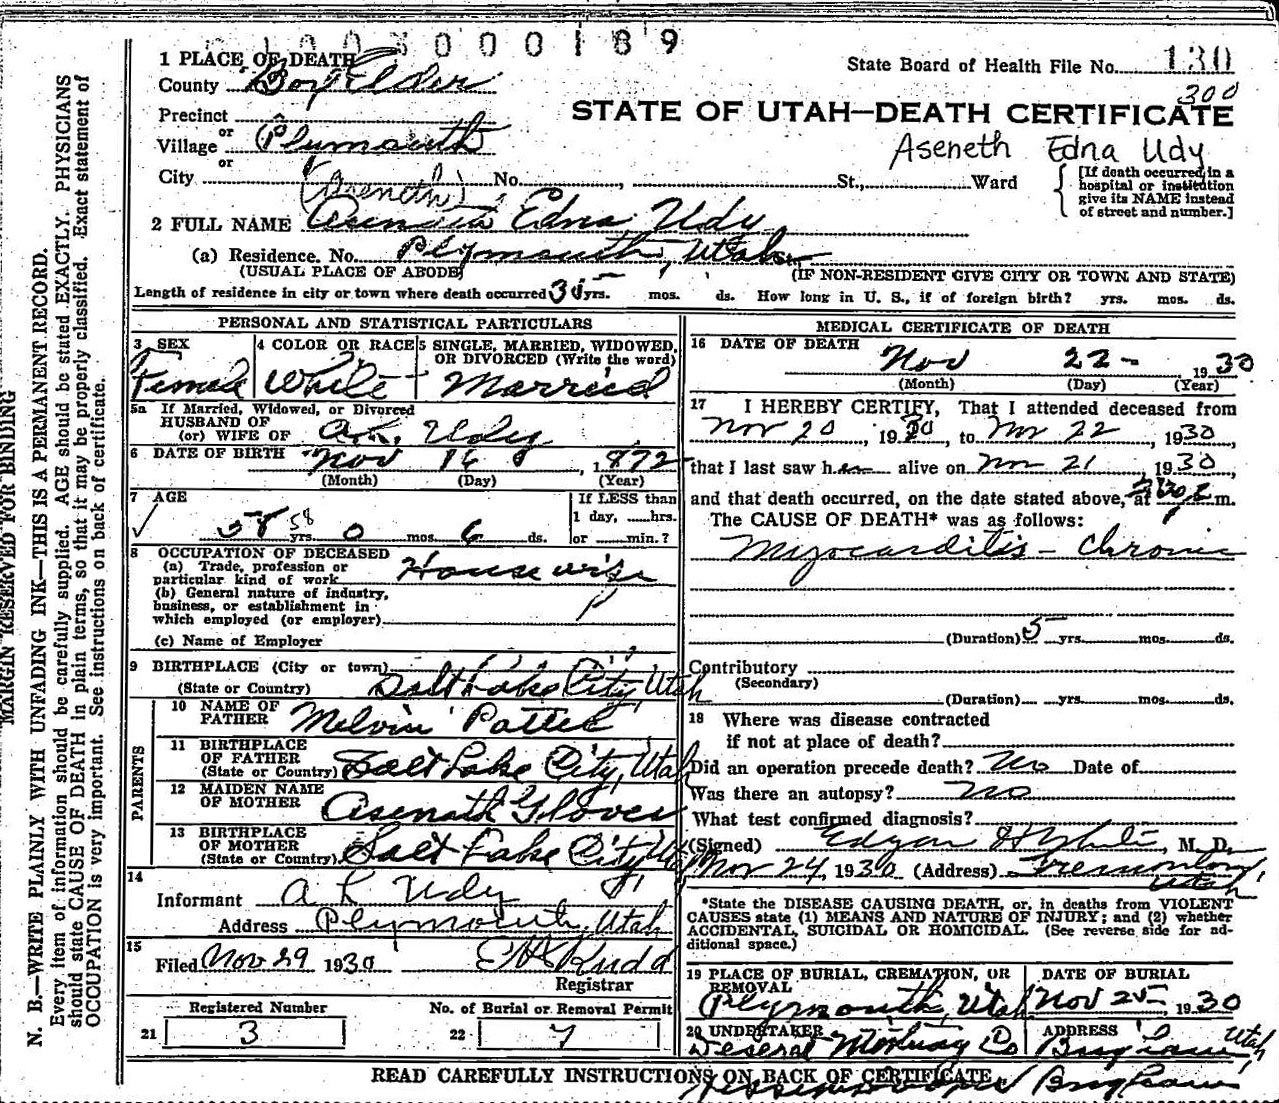 1003000189
1 PLACE OF DEATH
County Box Elder
State Board of Health File No. 130
300
STATE OF UTAH—DEATH CERTIFICATE
Precinct
or
Village Plymouth
or
City (Aseneth) No. , St., Ward
Aseneth Edna Udy
[If death occurred in a
hospital or institution
give its NAME instead
of street and number.]
2 FULL NAME Aseneth Edna Udy
(a) Residence. No. Plymouth, Utah
(USUAL PLACE OF ABODE) (IF NON-RESIDENT GIVE CITY OR TOWN AND STATE)
Length of residence in city or town where death occurred 35 yrs. mos. ds. How long in U. S., if of foreign birth? yrs. mos. ds.
PERSONAL AND STATISTICAL PARTICULARS
3 SEX
Female
4 COLOR OR RACE
White
5 SINGLE, MARRIED, WIDOWED,
OR DIVORCED (Write the word)
Married
5a If Married, Widowed, or Divorced
HUSBAND OF
(or) WIFE OF Udy
6 DATE OF BIRTH Nov 16, 1872
(Month) (Day) (Year)
7 AGE
58 58 yrs. 0 mos. 6 ds.
If LESS than
1 day, hrs.
or min.?
8 OCCUPATION OF DECEASED
(a) Trade, profession or
particular kind of work Housewife
(b) General nature of industry,
business, or establishment in
which employed (or employer)
(c) Name of Employer
9 BIRTHPLACE (City or town)
(State or Country) Salt Lake City, Utah
PARENTS
10 NAME OF
FATHER Melvin
11 BIRTHPLACE
OF FATHER
(State or Country) Salt Lake City, Utah
12 MAIDEN NAME
OF MOTHER Asenath Glover
13 BIRTHPLACE
OF MOTHER
(State or Country) Salt Lake City
14
Informant A L Udy
Address Plymouth, Utah
15
Filed Nov 29 1930 Rudd
Registrar
Registered Number
21 3
No. of Burial or Removal Permit
22 7
MEDICAL CERTIFICATE OF DEATH
16 DATE OF DEATH
Nov 22 - 1930
(Month) (Day) (Year)
17 I HEREBY CERTIFY, That I attended deceased from
Nov 20, 1930, to Nov 22, 1930,
that I last saw her alive on Nov 21, 1930,
and that death occurred, on the date stated above, at m.
The CAUSE OF DEATH* was as follows:
Myocarditis - Chronic
(Duration) 5 yrs. mos. ds.
Contributory
(Secondary)
(Duration) yrs. mos. ds.
18 Where was disease contracted
if not at place of death?
Did an operation precede death? No Date of
Was there an autopsy? No
What test confirmed diagnosis?
(Signed) Edgar H White, M. D.
Nov 24, 1930 (Address) Tremonton,
Utah
*State the DISEASE CAUSING DEATH, or, in deaths from VIOLENT
CAUSES state (1) MEANS AND NATURE OF INJURY; and (2) whether
ACCIDENTAL, SUICIDAL OR HOMICIDAL. (See reverse side for ad-
ditional space.)
19 PLACE OF BURIAL, CREMATION, OR
REMOVAL
Plymouth, Utah
DATE OF BURIAL
Nov 25 1930
20 UNDERTAKER
Deseret Mortuary Co
ADDRESS
Brigham, Utah
READ CAREFULLY INSTRUCTIONS ON BACK OF CERTIFICATE
Brigham
MARGIN RESERVED FOR BINDING
N. B.—WRITE PLAINLY WITH UNFADING INK—THIS IS A PERMANENT RECORD.
Every item of information should be carefully supplied. AGE should be stated EXACTLY. PHYSICIANS
should state CAUSE OF DEATH in plain terms, so that it may be properly classified. Exact statement of
OCCUPATION is very important. See instructions on back of certificate.